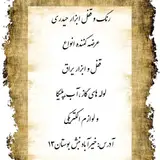 رنگ و قفل ابزار حیدری
عرضه کننده انواع
قفل و ابزار یراق
لوله های گاز، آب، پلیکا
و لوازم الکتریکی
آدرس: خیرآباد نبش بوستان ۱۳